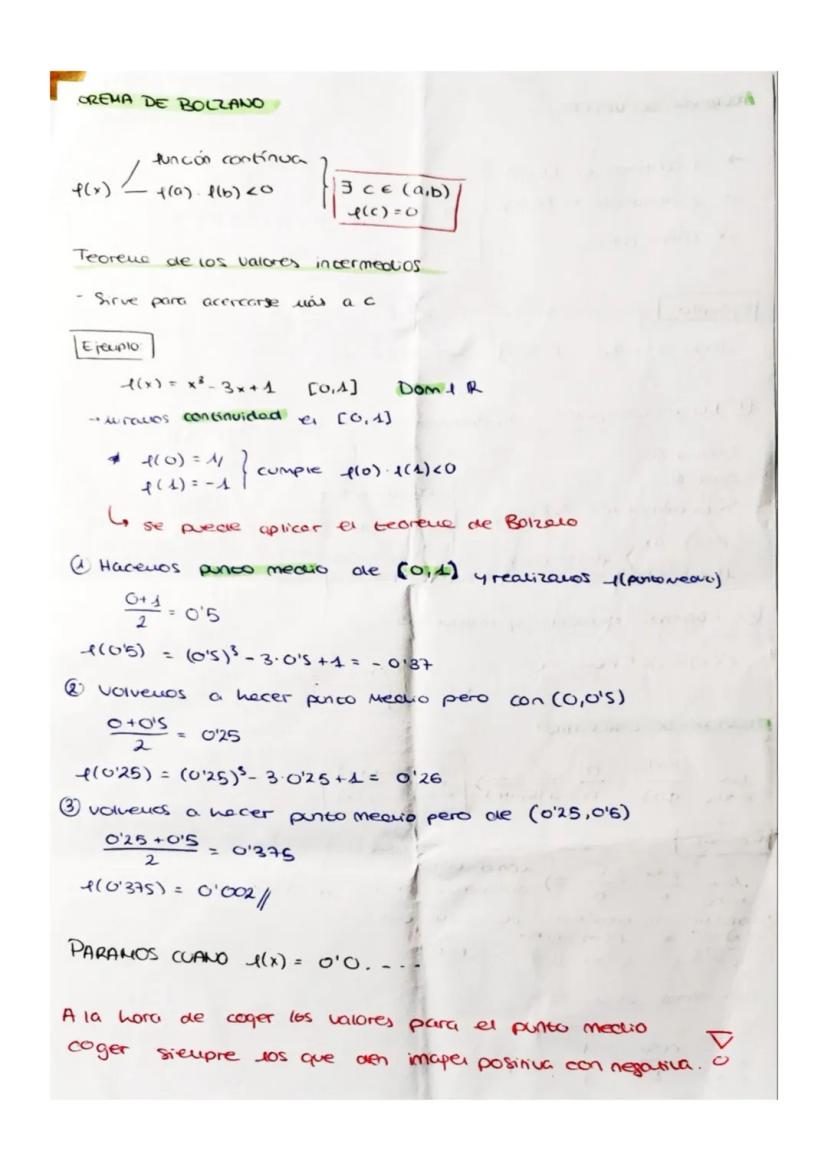 OREMA DE BOLZANO
función contínua
f(x) f(a) · f(b) < 0
∃ c ∈ (a,b)
f(c) = 0
Teorema de los valores intermedios
- Sirve para acercarse más a c
Ejemplo:
f(x) = x³ - 3x + 1 [0,1] Dom f R
→ miramos continuidad en [0,1]
* f(0) = 1//
f(1) = -1 } cumple f(0) · f(1) < 0
↳ se puede aplicar el teorema de Bolzano
① Hacemos punto medio de [0,1] y realizamos f(punto medio)
0+1/2 = 0'5
f(0'5) = (0'5)³ - 3·0'5 + 1 = -0'37
② Volvemos a hacer punto medio pero con (0,0'5)
0+0'5/2 = 0'25
f(0'25) = (0'25)³ - 3·0'25 + 1 = 0'26
③ volvemos a hacer punto medio pero de (0'25,0'5)
0'25+0'5/2 = 0'375
f(0'375) = 0'002//
PARAMOS CUANO f(x) = 0'0. - - -
A la hora de coger los valores para el punto medio
coger siempre los que den imagen positiva con negativa.